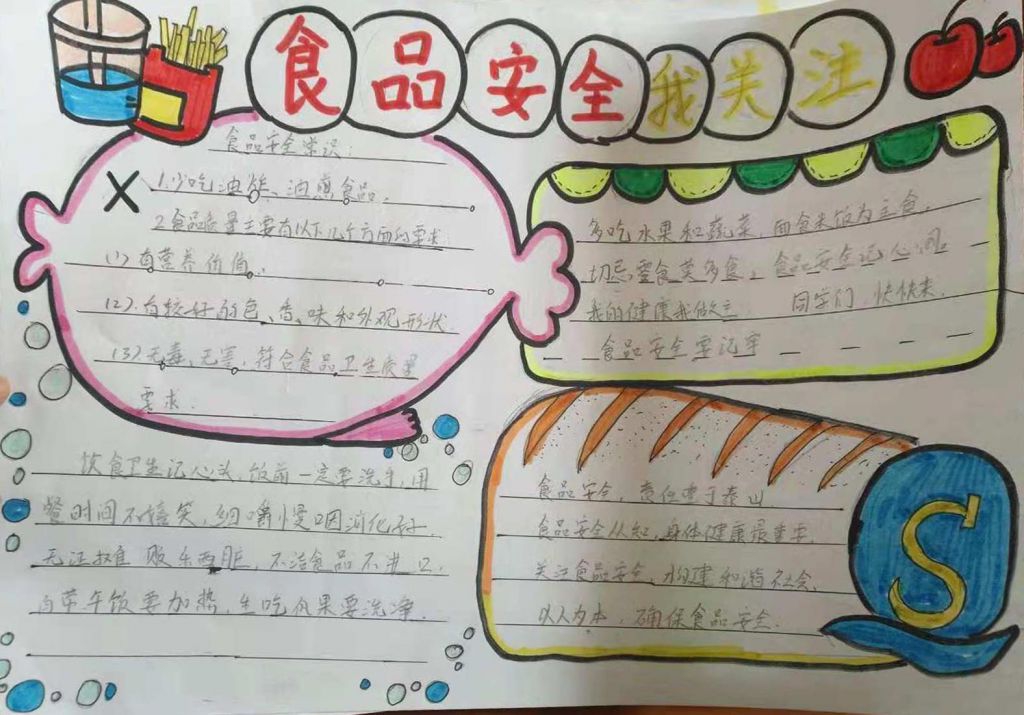 食品安全我关注
食品安全常识:
1.少吃油炸、油煎食品。
2.食品质量主要有以下几个方面的要求:
(1)有营养价值。
(2).有较好的色、香、味和外观形状
(3)无毒、无害,符合食品卫生质量
要求.
多吃水果和蔬菜,面食米饭为主食.
切忌零食莫多食。食品安全记心间
我的健康我做主 同学们 快快来.
食品安全要记牢
饮食卫生记心头,饭前一定要洗手,用
餐时间不嬉笑,细嚼慢咽消化好.
无证摊贩东西脏,不洁食品不进口,
自带午饭要加热,生吃瓜果要洗净.
食品安全,责任重于泰山.
食品安全从知,身体健康最重要.
关注食品安全,共建和谐社会.
以人为本,确保食品安全.
S